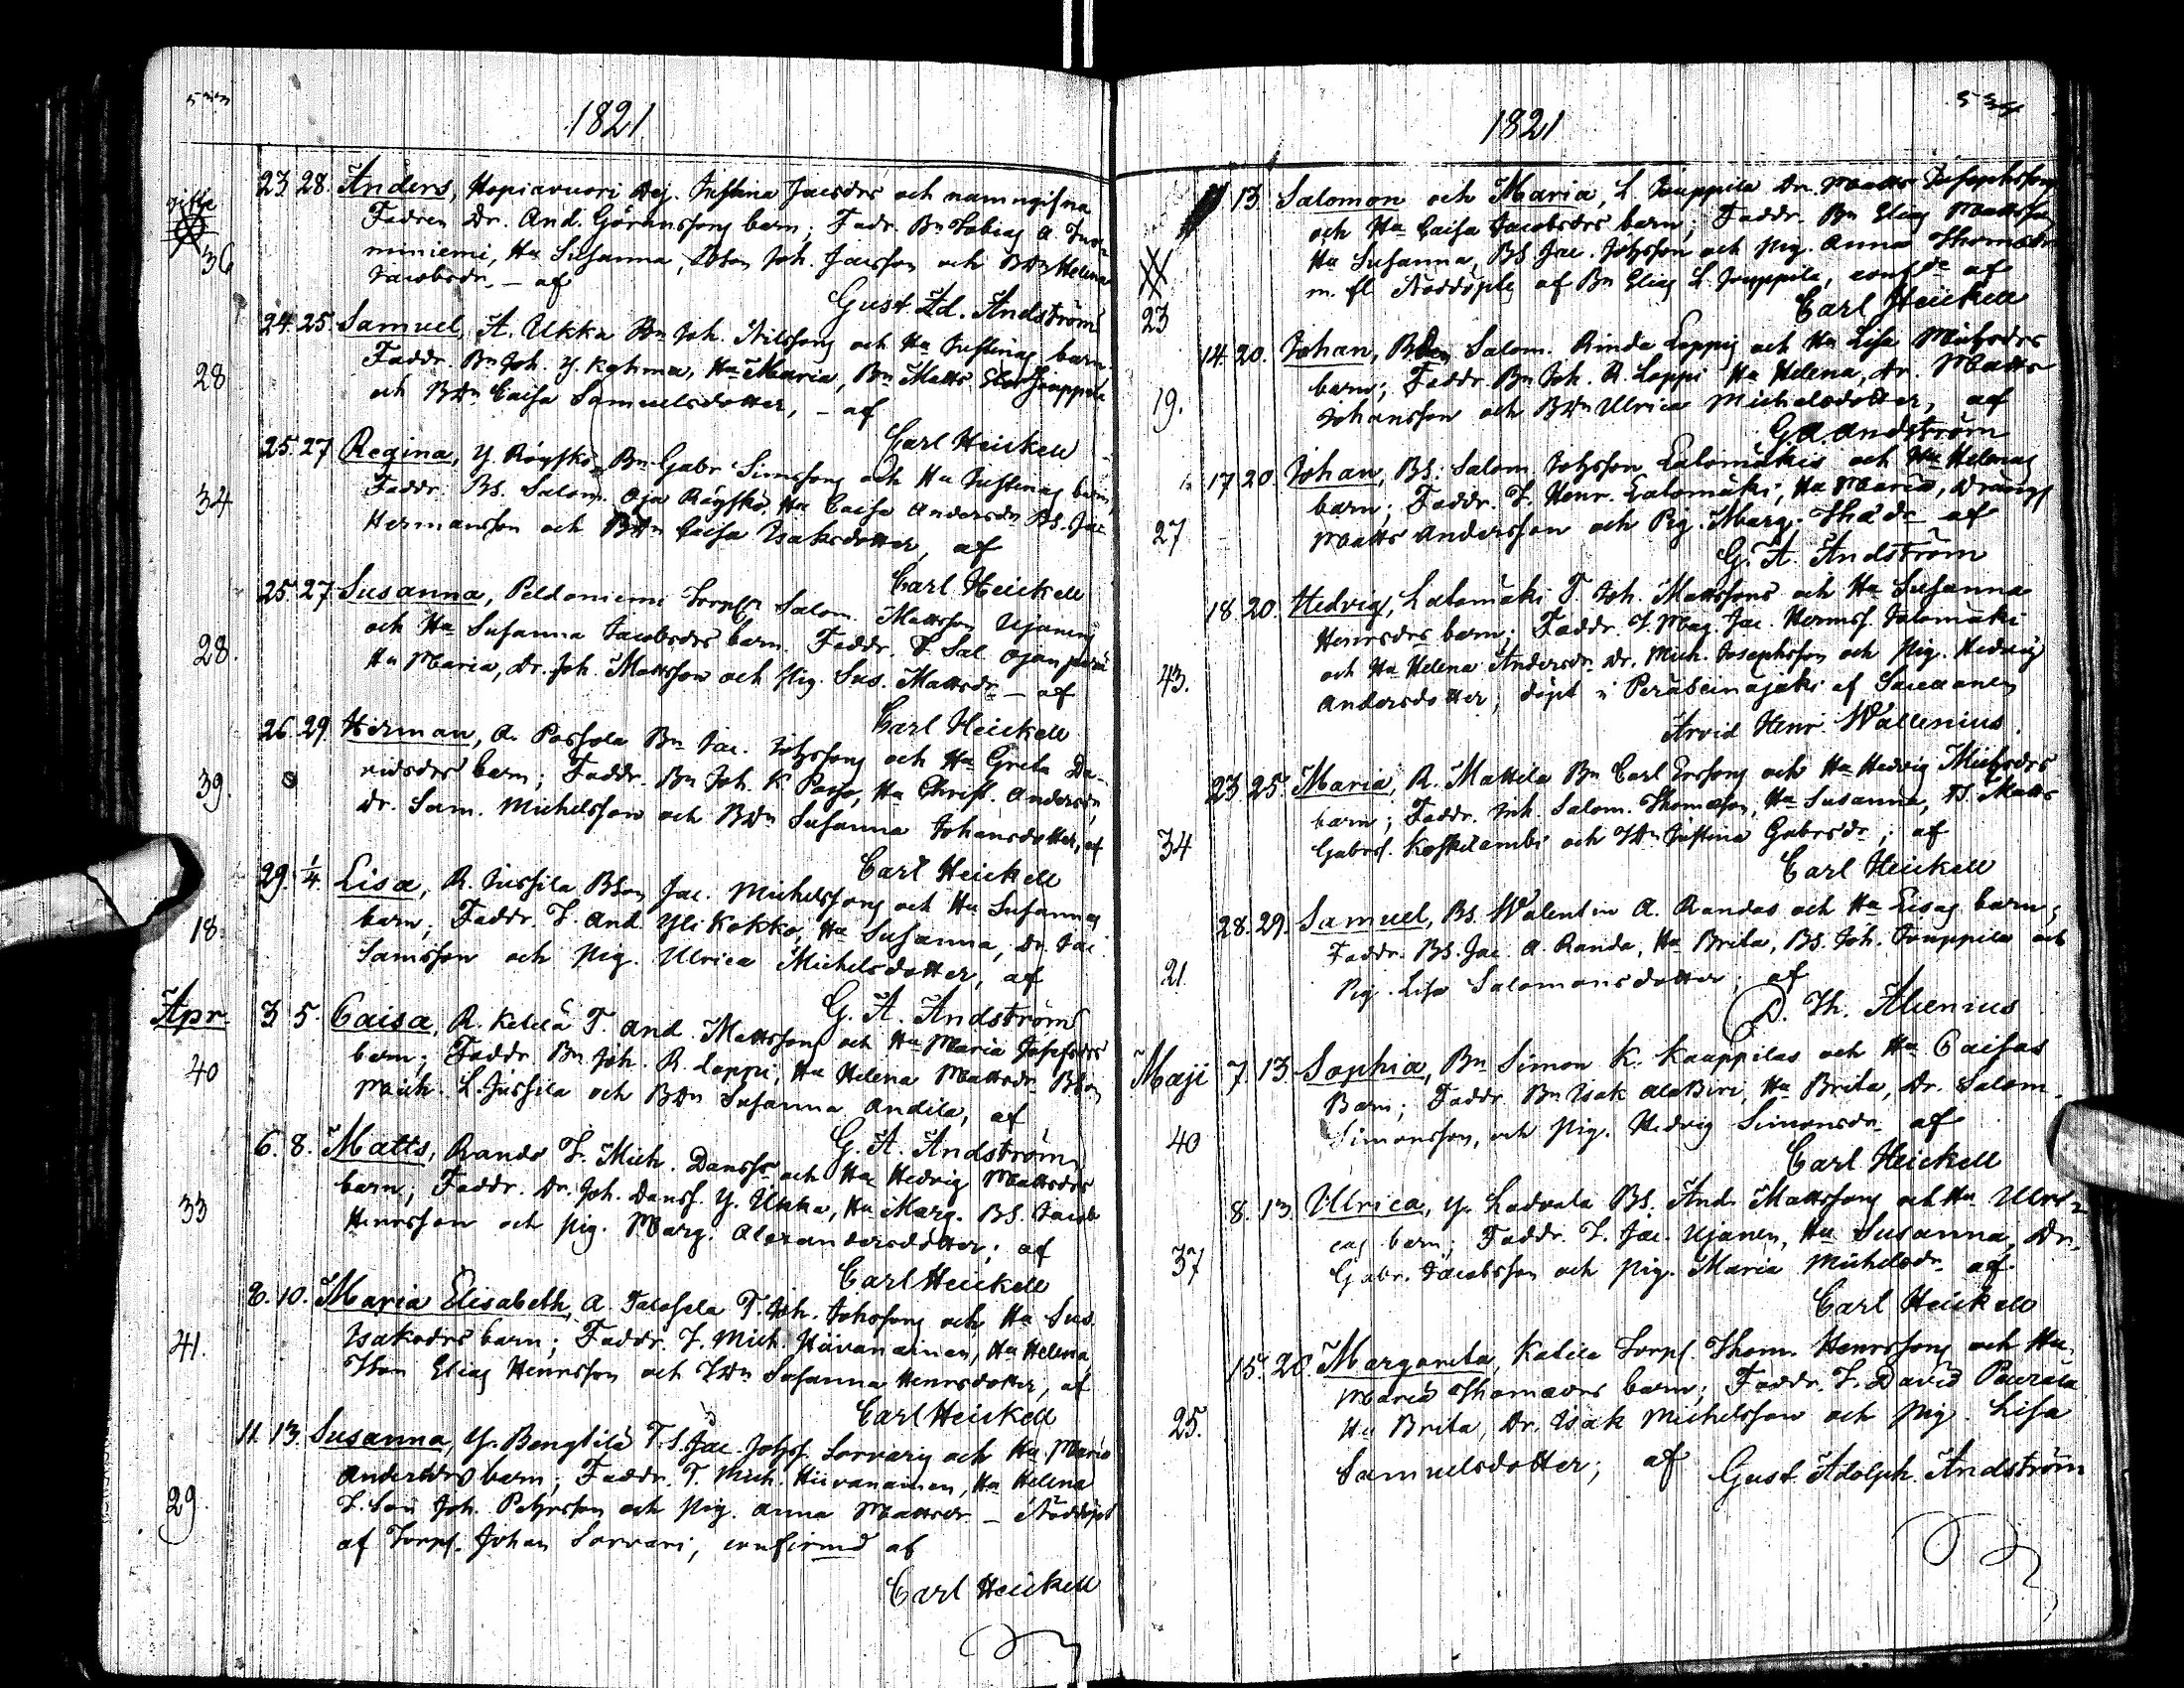 1821
23 28. Anders, Hopiavuori Dej. Justina Jacsdrs och namngifna
Fadren Dr. And. Göranssons barn; Fadr. Bn Tobias A. Juur-
36
miniemi, Ha Susanna, Bson Joh. Jacsson och BDn Helena
Jacobsdr. – af
Gust. Ad. Andström
24. 25. Samuel, A. Ukka Bn Joh. Nilssons och Ha Justinas barn.
28
Faddr. Bn Joh. Y. Kohma, Ha Maria, Bn Matts Jouppila
och BDn Caisa Samuelsdotter, – af
Carl Heickell
25. 27 Regina, Y. Röyskö Bn Gabr. Simssons och Ha Justinas barn,
34
Faddr. BS. Salom. Oja Röyskö, Ha Caisa Andersdr. BS. Jac
Hermansson och BDn Caisa Isaksdotter, af
Carl Heickell
25. 27 Susanna, Peldoniemi Torpr Salom. Mattsson Ujanens
28.
och Ha Susanna Jacobsdrs barn. Faddr. T. Sal. Ojanperä
Ha Maria, Dr. Joh. Mattsson och Pig. Sus. Mattsdr. – af
Carl Heickell
26. 29. Herman, A. Passola Bn Jac. Johssons och Ha Greta Da-
39.
vidsdrs barn; Faddr. Bn Joh. K. Passo, Ha Christ. Andersdr,
Dr. Sam. Michelsson och BDn Susanna Johansdotter, af
Carl Heickell
29. 1/4. Lisa, R. Jussila BSon Jac. Michelssons och Ha Susannas
18.
barn; Faddr. T. And. Yli Kokko, Ha Susanna, Dr. Jac
Samsson och Pig. Ulrica Michelsdotter, af
G. A. Andström
Apr. 3 5. Caisa, R. Ketola T. And. Mattssons och Ha Maria Josefsdrs
40
barn; Faddr. Bn Joh. R. Loppi, Ha Helena Mattsdr. BSon
Mich. L. Jussila och BDn Susanna Andila, af
G. A. Andström
6. 8. Matts, Rando T. Mich. Danssr och Ha Hedvig Mattsdrs
33
barn; Faddr. Dr. Joh. Danss. Y. Ukka, Ha Marg. BS. Jacob
Henrsson och Pig. Marg. Alexandersdotter; af
Carl Heickell
8. 10. Maria Elisabeth, A. T. Joh. Johssons och Ha Sus.
41.
Isaksdrs barn; Faddr. T. Mich. Hiivanainen, Ha Helena
TSon Elias Henrsson och TDn Susanna Henrsdotter, af
Carl Heickell
11. 13. Susanna, Y. Bengtilä T.S. Jac. Johss. Sorvaris och Ha Maria
29.
Andersdrs barn; Faddr. T. Mich. Hiivanainen, Ha Helena
T. Son Joh. Petersson och Pig. Anna Mattsdr. – Nöddöpt
af Torp. Johan Sorvari, confirmd af
Carl Heickell
1821
11 13 Salomon och Maria, L. Jouppila Dr. Matts Josephssons
och Ha Caisa Jacobsdrs barn; Faddr. Bn Elias Mattsson,
Ha Susanna, BS Jac. Johsson och Pig. Anna Thomsdr
m. fl. Nöddöpte af Bn Elias L. Jouppila, confde af
23
Carl Heickell
14. 20. Johan, BDn Salom. Rinda Loppis och Ha Lisa Michsdrs
19.
barn; Faddr. Bn Joh. R. Loppi Ha Helena, Dr. Matts
Johansson och BDn Ulrica Michelsdotter, af
G. A. Andström
17 20. Johan, BS. Salom. Johsson Lalomäkis och Ha Helenas
27
barn; Faddr. T. Henr. Lalomäki, Ha Maria, Dräng
Matts Andersson och Pig. Marg. Thådr af
G. A. Andström
18. 20. Hedvig, Lalomäki T. Joh. Mattssons och Ha Susanna
Henrsdrs barn; Faddr. T. Mag. Jac. Hermss. Jalomäki
43.
och Ha Helena Andersdr. Dr. Mich. Josephsson och Pig. Hedvig
Andersdotter; döpt i Peräseinäjoki af Sacellanen
Arvid Henr. Wallenius.
23. 25. Maria, R. Mattila Bn Carl Erssons och Ha Hedvig Michsdrs
barn; Faddr. Inh. Salom. Thomasson, Ha Susanna, TS. Matts
34
Gabrs. Koskilambi och TDn Justina Gabrsdr.; af
Carl Heickell
28. 29. Samuel, BS. Walentin A. Randas och Ha Lisas barn;
Faddr. BS. Jac. A. Randa, Ha Brita, BS. Joh. Jouppila och
21.
Pig. Lisa Salomonsdotter; af
D. Th. Alcenius
Maji 7. 13. Sophia, Bn Simon K. Kauppilas och Ha Caisas
Barn; Faddr. Bn Isak AlaBiri, Ha Brita, Dr. Salom.
40
Simonsson, och Pig. Hedvig Simonsdr. af
Carl Heickell
8. 13. Ulrica, Y. Ladvala BS. And. Mattssons och Ha Ulri-
37
cas barn; Faddr. T. Jac. Ujanen, Ha Susanna, Dr.
Gabr. Jacobsson och Pig. Maria Michelsdr. af
Carl Heickell
15. 20. Margareta, Katila Torp. Thom. Henrssons och Ha
Maria Thomasdrs barn; Faddr. T. David Peurala
25.
Ha Brita, Dr. Isak Michelsson och Pig. Lisa
Samuelsdotter; af Gust. Adolph. Andström